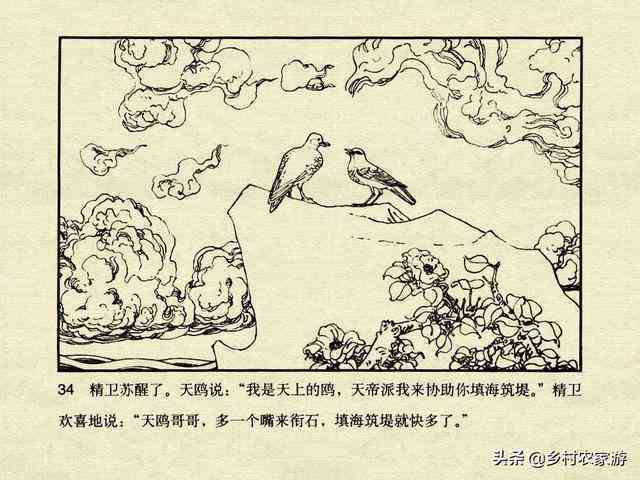 34 精卫苏醒了。天鸥说：“我是天上的鸥，天帝派我来协助你填海筑堤。”精卫
欢喜地说：“天鸥哥哥，多一个嘴来衔石，填海筑堤就快多了。”
头条 @乡村农家游